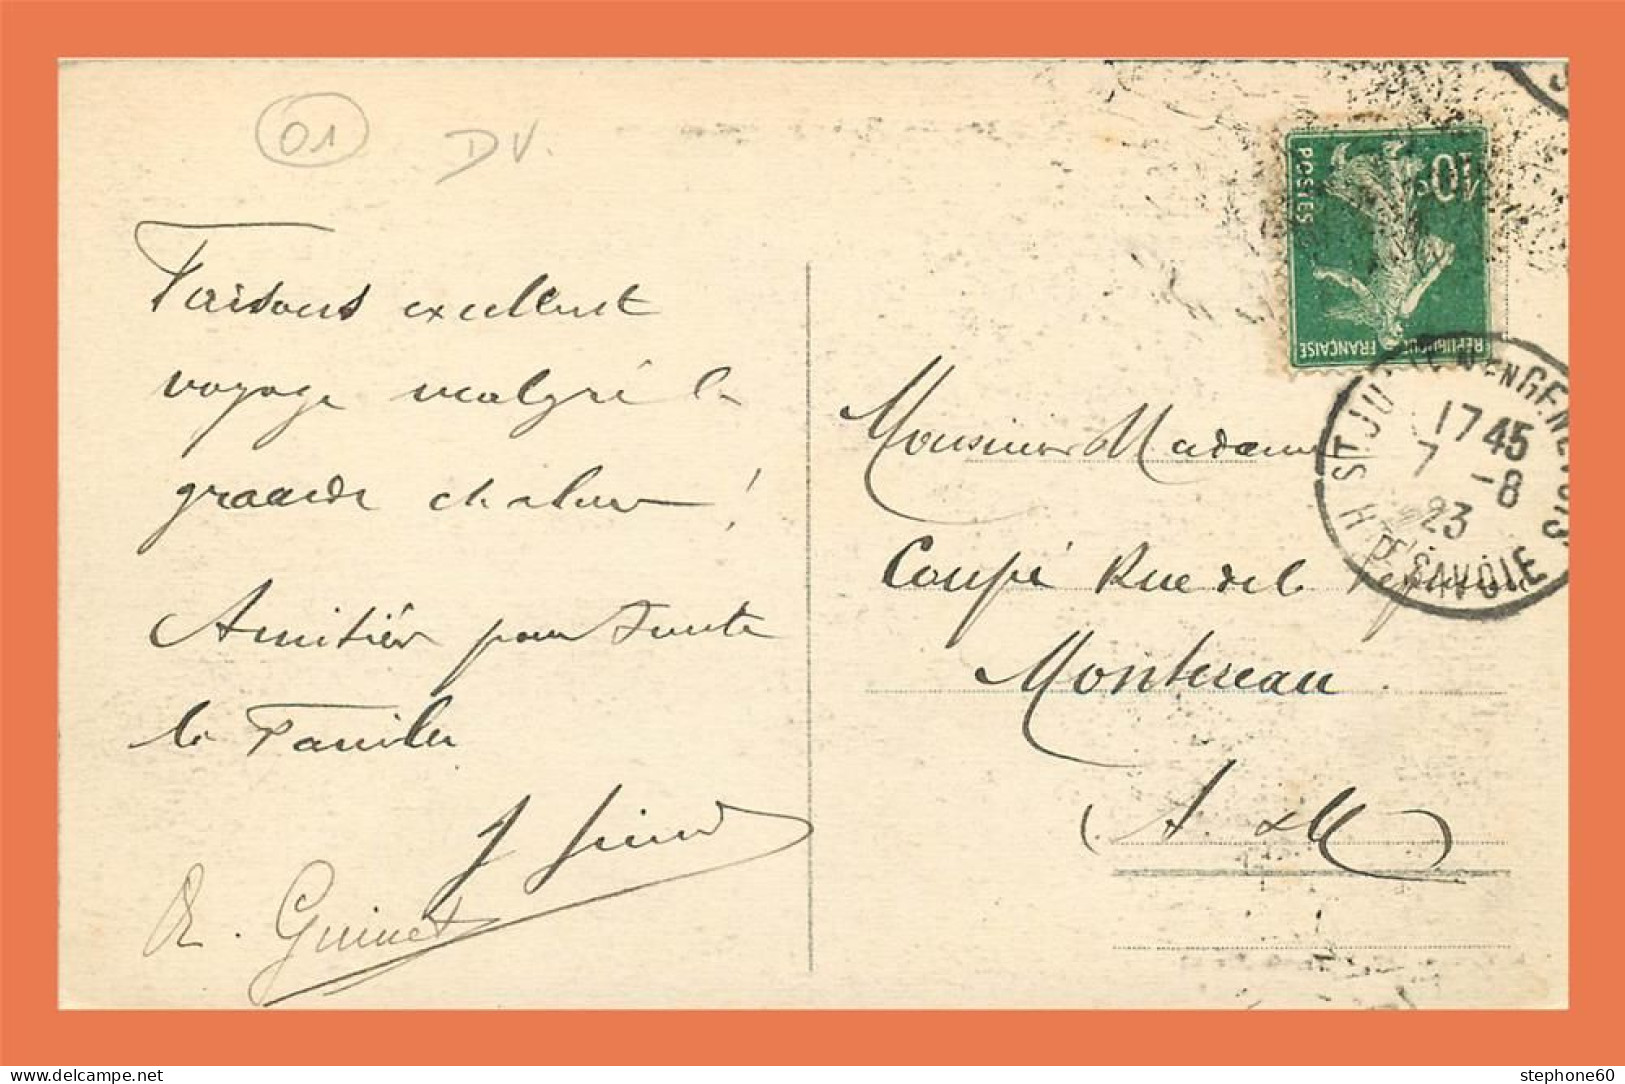 01 DV.
Faisons excellent
voyage malgré la
grande chaleur !
Amitiés pour toute
la Famille
J
A. Guinet
10c
POSTES
REPUBLIQUE FRANÇAISE
ST JULIEN EN GENEVOIS
1745
7 -8
23
HTE SAVOIE
Monsieur Madame
Coupé Rue de la
Montereau
S. & M
stephone60